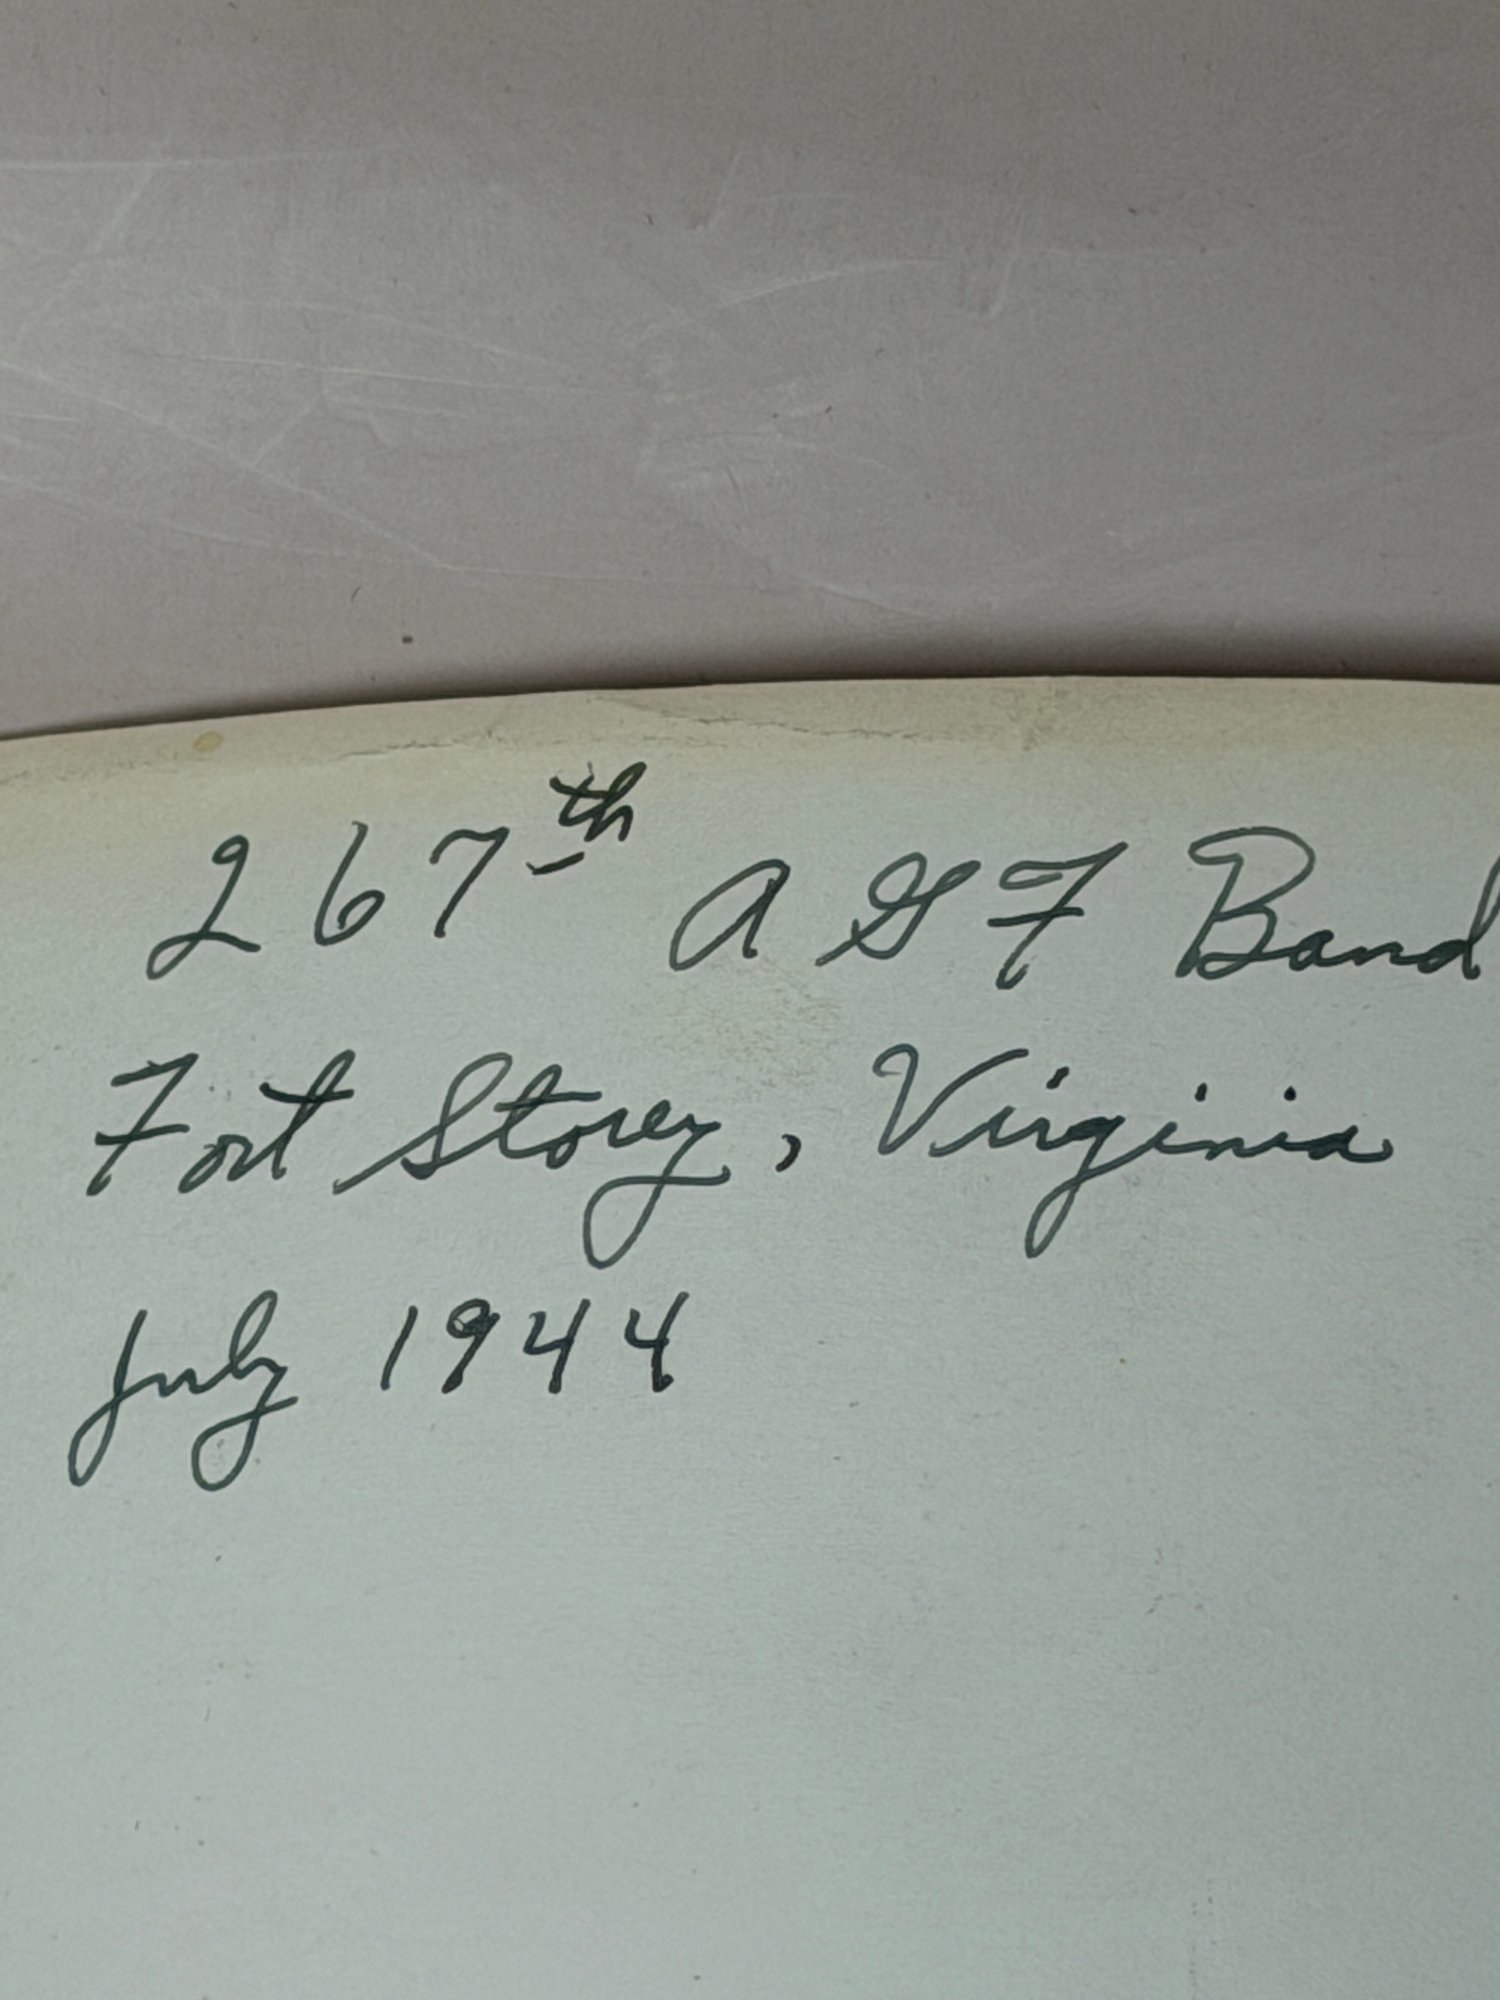 267th AGF Band
Fort Story, Virginia
July 1944